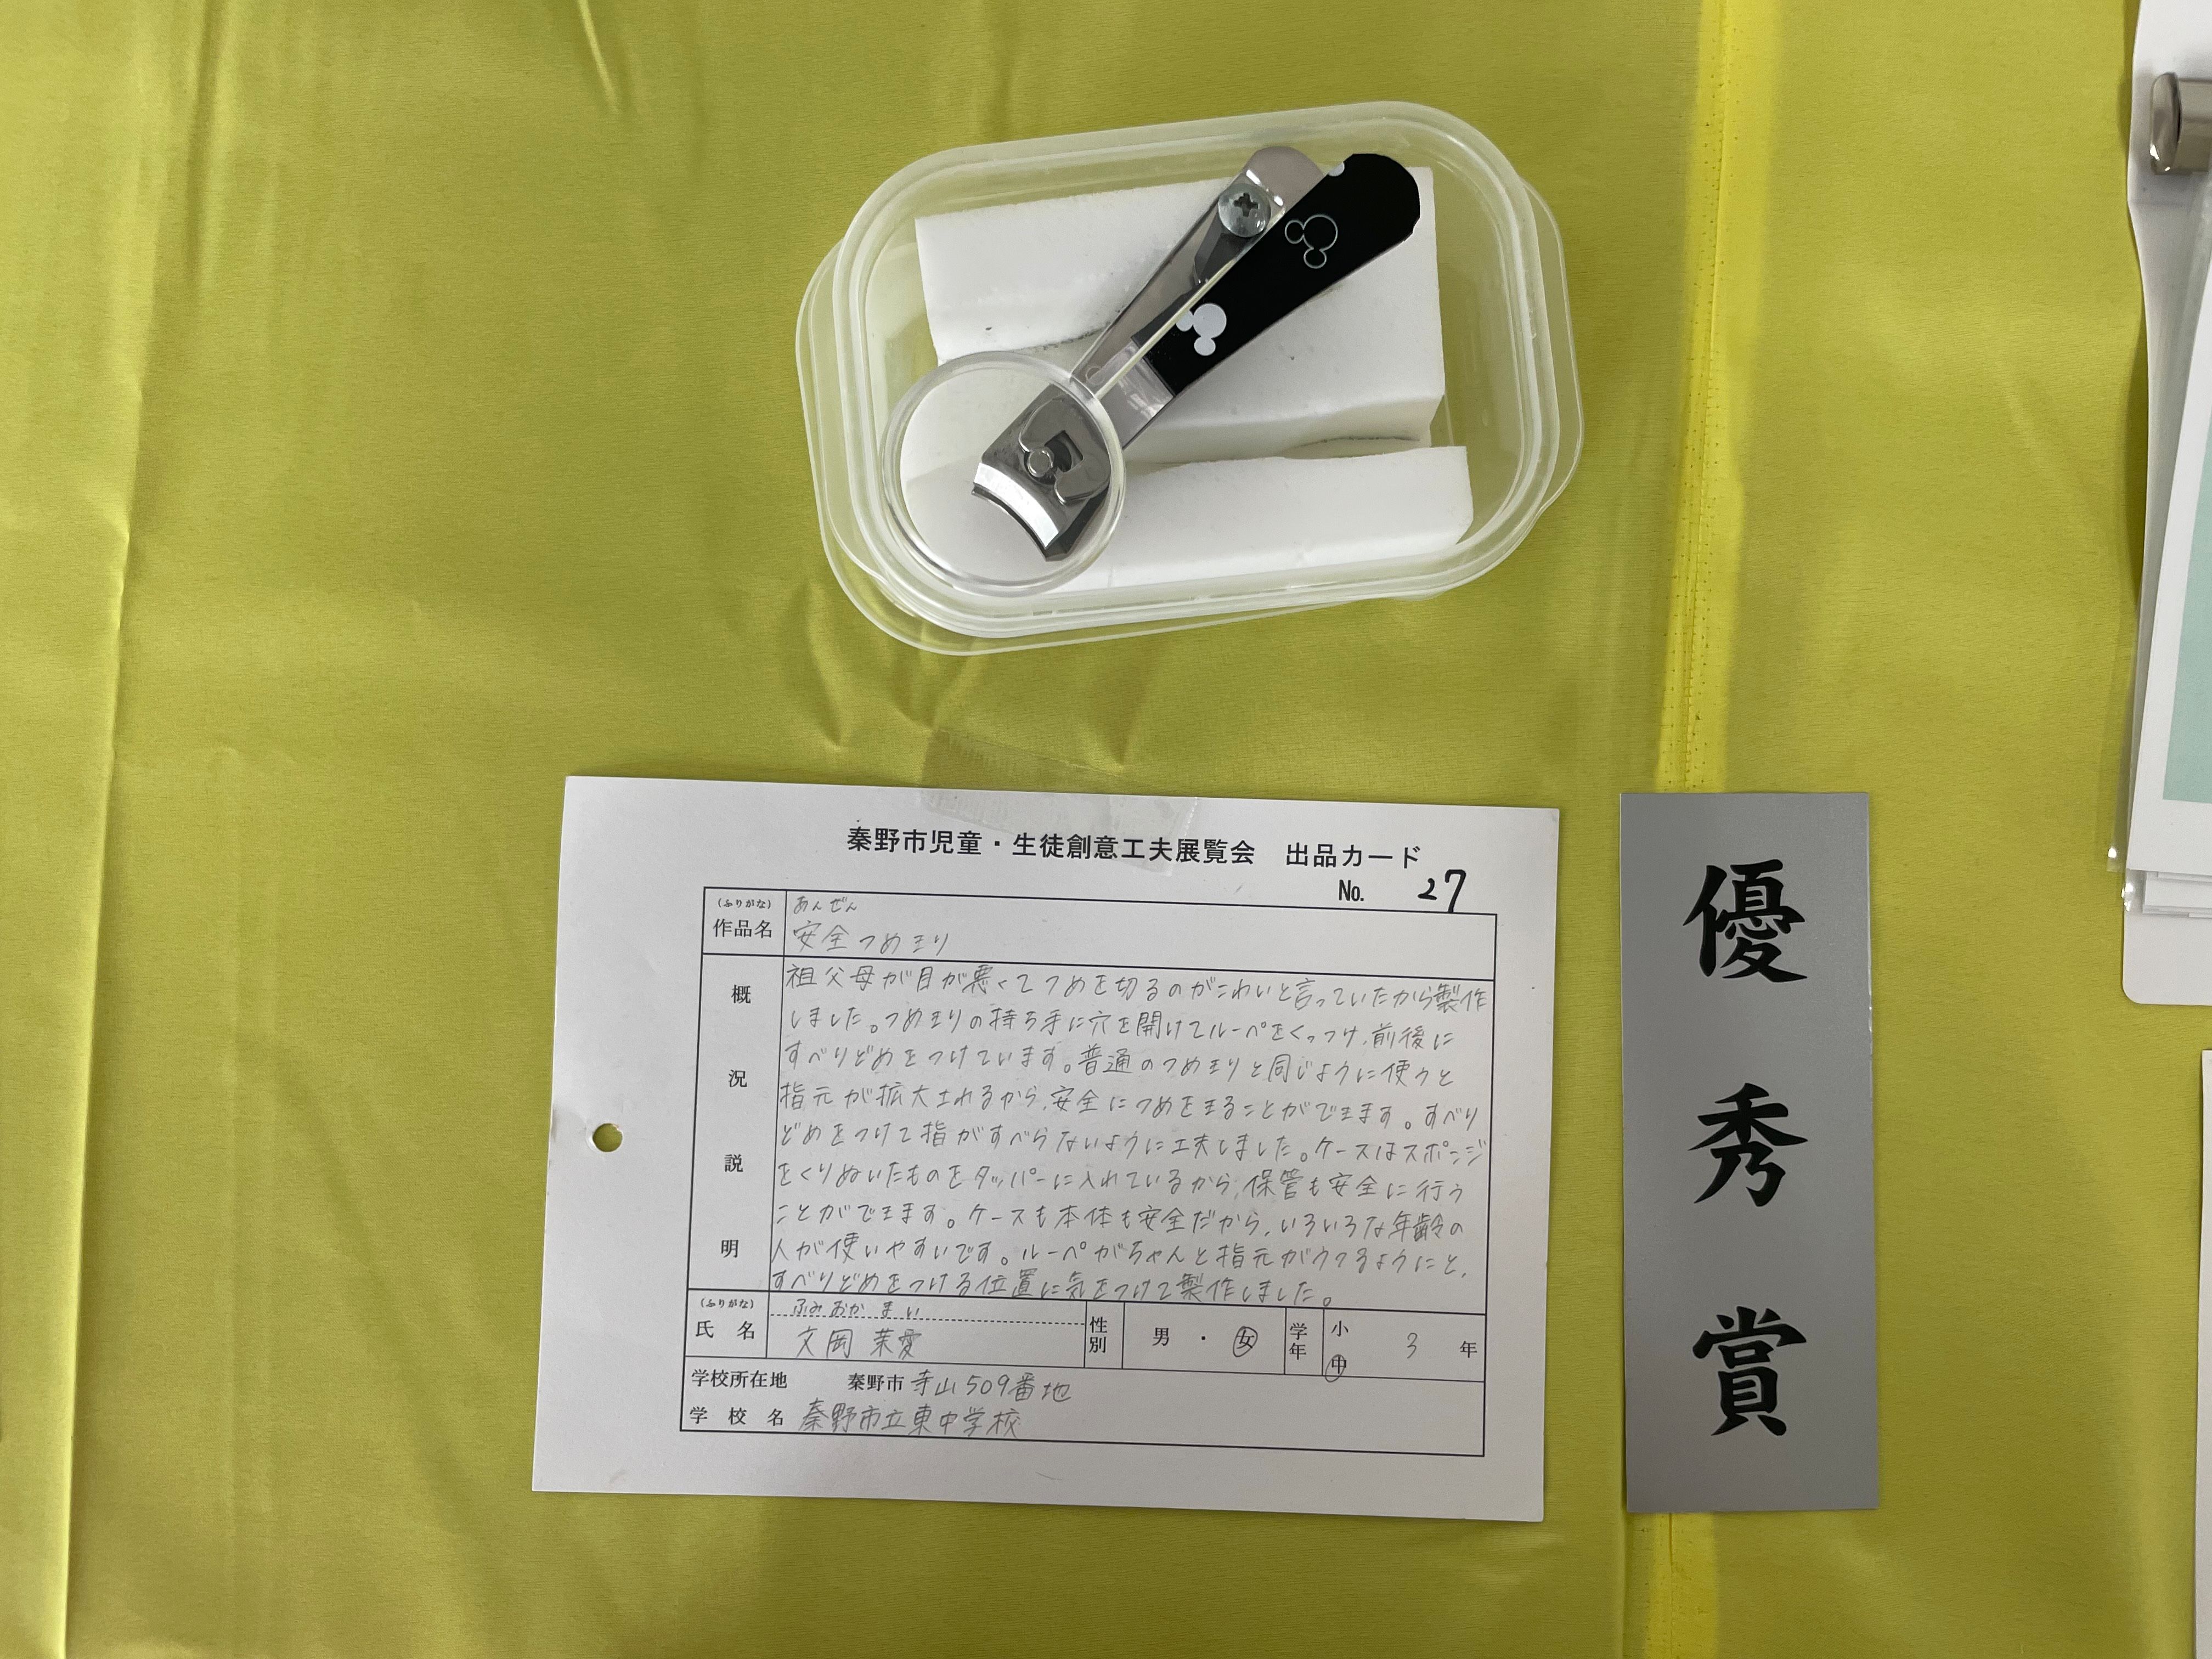 秦野市児童・生徒創意工夫展覧会 出品カード
No. 27
(ふりがな) あんぜん
作品名 安全つめきり
概況説明
祖父母が目が悪くてつめを切るのがこわいと言っていたから製作
しました。つめきりの持ち手に穴を開けてルーペをくっつけ、前後に
すべりどめをつけています。普通のつめきりと同じように使うと
指元が拡大されるから、安全につめをきることができます。すべり
どめをつけて指がすべらないように工夫しました。ケースはスポンジ
をくりぬいたものをタッパーに入れているから、保管も安全に行う
ことができます。ケースも本体も安全だから、いろいろな年齢の
人が使いやすいです。ルーペがちゃんと指元がうつるようにと、
すべりどめをつける位置に気をつけて製作しました。
(ふりがな) ふみおか まい
氏名 文岡 茉愛 性別 男・女 学年 小 中 3 年
学校所在地 秦野市 寺山509番地
学校名 秦野市立東中学校
優秀賞